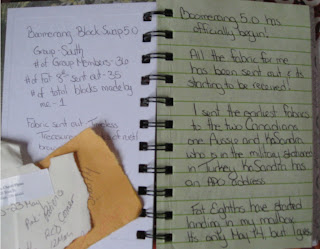 Boomerang Block Swap 5.0
Group: South
# of Group Members: 36
# of Fat 8ths sent out - 35
# of total blocks made by
me - 1
Fabric sent out:
Boomerang 5.0 has
officially begun!
All the fabric for me
has been sent out & its
starting to be received!
I sent the earliest fabrics
to the two Canadians
one Aussie and KaSandra
who is in the military stationed
in Turkey. KaSandra has
an APO address
Fat Eighths have started
landing in my mailbox
Its only May 14 but I